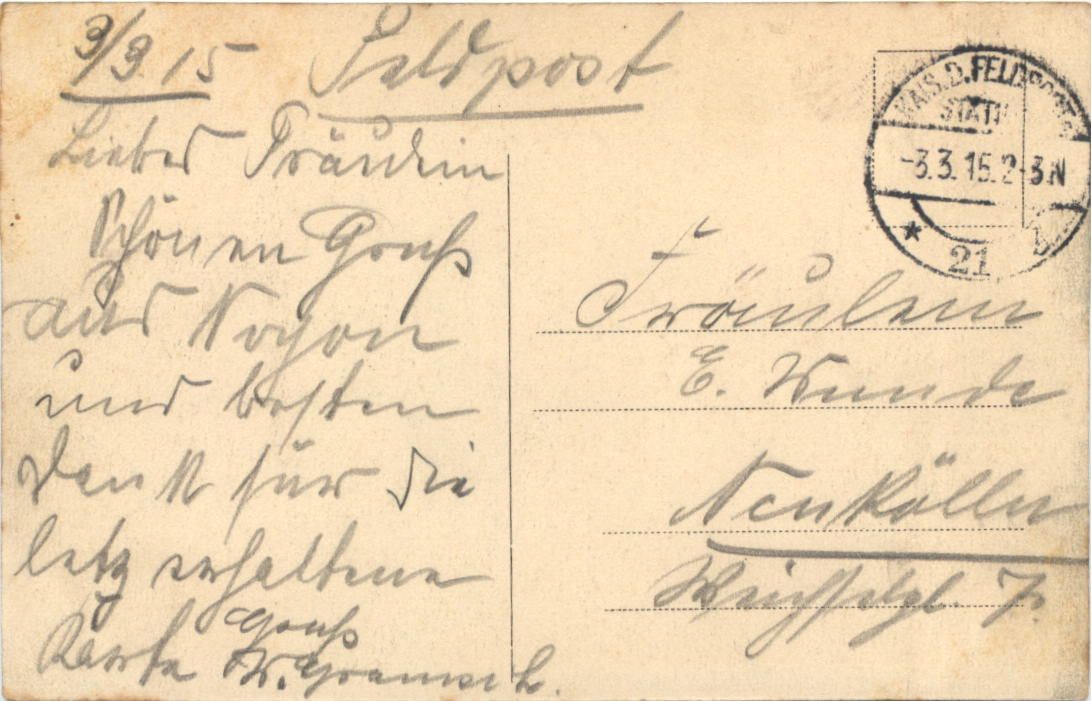 3/3.15 Feldpost
Liebes Fräulein
Schönen Gruß
aus Noyon
und besten
Dank für die
letz erhaltene
Karte Gruß
W.
KAIS. D. FELDPOST
STATI
-3.3.15.2-3N
* 21
Fräulein
E. Wunde
Neukölln
Weichselpl. 7.